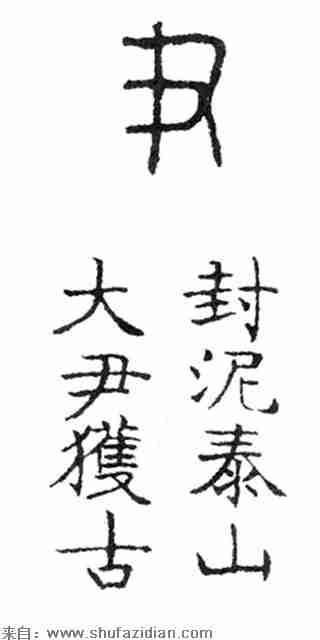 尹
封泥泰山
大尹獲古
来自：www.shufazidian.com